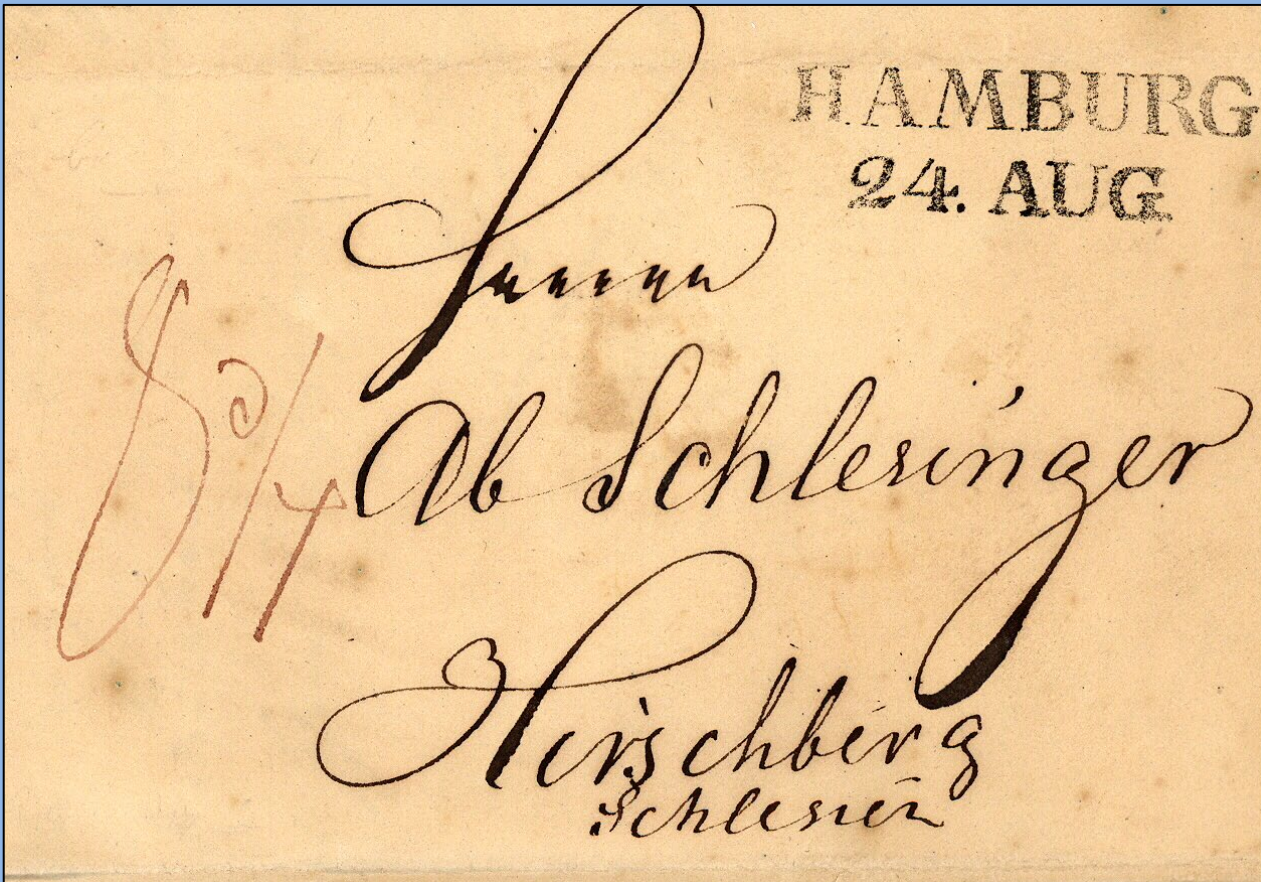 HAMBURG
24. AUG
Herrn
Ab Schlesinger
Hirschberg
Schlesien